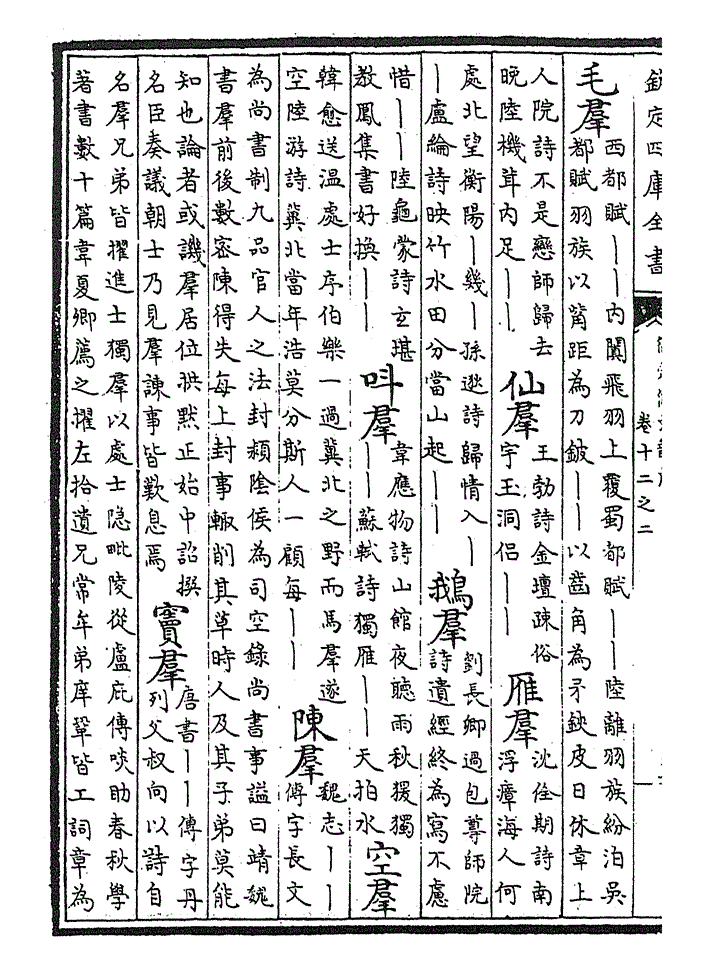 欽定四庫全書
卷十二之二
毛羣
西都賦——内闐飛羽上覆蜀都賦——陸離羽族紛泊吳
都賦羽族以觜距為刀鈹——以齒角為矛鋏皮日休章上
人院詩不是戀師歸去
晚陸機茸内足——
仙羣
王勃詩金壇疎俗
宇玉洞侶——
雁羣
沈佺期詩南
浮瘴海人何
處北望衡陽—幾—孫逖詩歸情入—
—盧綸詩映竹水田分當山起——
鵝羣
劉長卿過包尊師院
詩遺經終為寫不慮
惜——陸龜蒙詩玄堪
教鳳集書好換——
叫羣
韋應物詩山館夜聽雨秋猨獨
——蘇軾詩獨雁——天拍水
空羣
韓愈送温處士序伯樂一過冀北之野而馬羣遂
空陸游詩冀北當年浩莫分斯人一顧每——
陳羣
魏志——
傳字長文
為尚書制九品官人之法封潁陰侯為司空錄尚書事謚曰靖魏
書羣前後數密陳得失每上封事輒削其草時人及其子弟莫能
知也論者或譏羣居位拱默正始中詔撰
名臣奏議朝士乃見羣諫事皆歎息焉
竇羣
唐書——傳字丹
列父叔向以詩自
名羣兄弟皆擢進士獨羣以處士隐毗陵從盧庇傳啖助春秋學
著書數十篇韋夏卿薦之擢左拾遺兄常牟弟庠鞏皆工詞章為